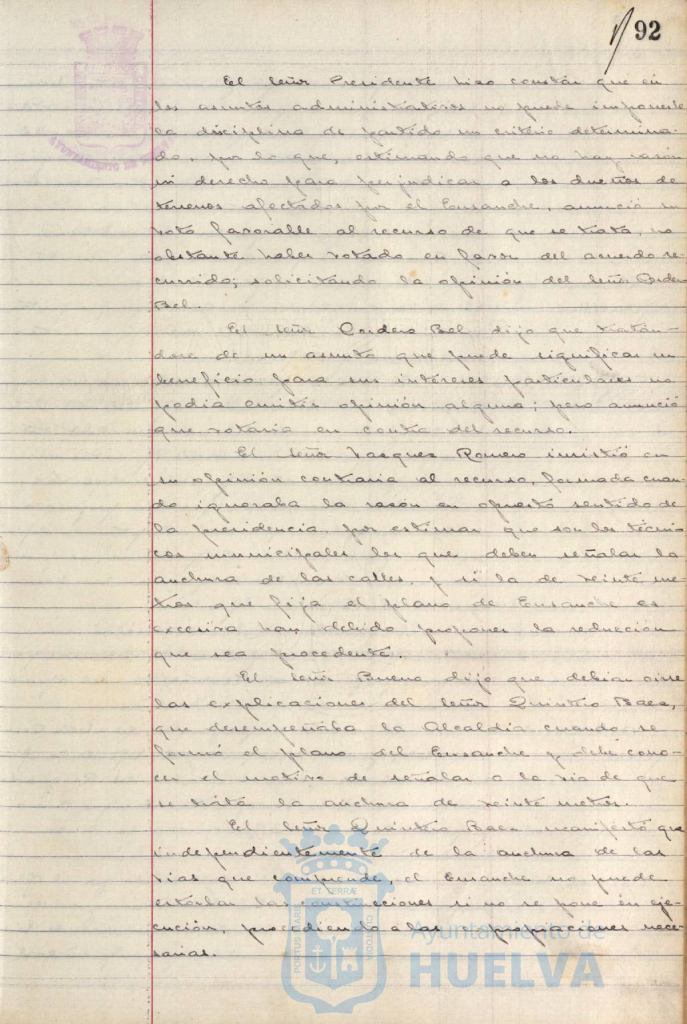 92
El Señor Presidente hizo constar que en
los asuntos administrativos no puede imponerse
la disciplina de partido un criterio determina-
do, por lo que, estimando que no hay razón
ni derecho para perjudicar a los dueños de
terrenos afectados por el Ensanche, anunció su
voto favorable al recurso de que se trata, no
obstante haber votado en favor del acuerdo re-
currido; solicitando la opinión del Señor Cordero
Bel.
El Señor Cordero Bel dijo que tratán-
dose de un asunto que puede significar un
beneficio para sus intereses particulares no
podía emitir opinión alguna; pero anunció
que votaria en contra del recurso.
El Señor Vazquez Romero insistió en
su opinión contraria al recurso, formada cuan-
do ignoraba la razón en opuesto sentido de
la presidencia, por estimar que son los técni-
cos municipales los que deben señalar la
anchura de las calles, y si la de veinte me-
tros que fija el plano de Ensanche es
excesiva han debido proponer la reducción
que sea procedente.
El Señor Bueno dijo que debian oirse
las explicaciones del Señor Quintio Baez,
que desempeñaba la Alcaldia cuando se
formó el plano del Ensanche y debe cono-
cer el motivo de señalar a la via de que
se trata la anchura de veinte metros.
El Señor Quintio Baez manifestó que
independientemente de la anchura de las
vias que comprende, el Ensanche no puede
estorbar las construcciones si no se pone en eje-
cución, procediendo a las expropiaciones nece-
sarias.
AYUNTAMIENTO DE
PORTUS MARIS ET TERRAE CUSTODIA
Ayuntamiento de
HUELVA